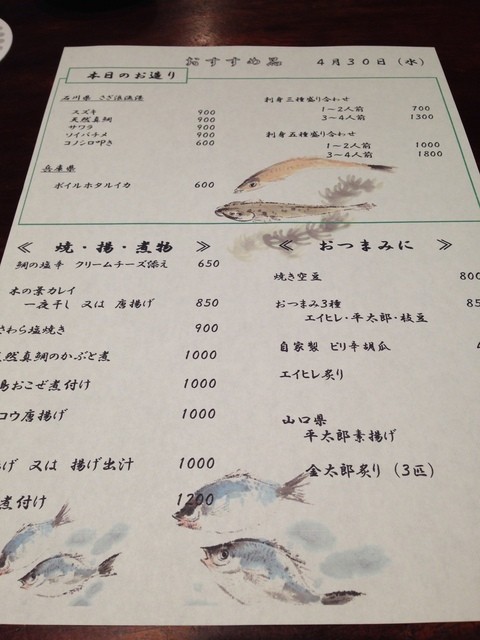 おすすめ品 4月30日（水）
本日のお造り
石川県
スズキ 900
天然真鯛 900
サワラ 900
ソイバチメ 900
コノシロ叩き 600
兵庫県
ボイルホタルイカ 600
刺身三種盛り合わせ
1〜2人前 700
3〜4人前 1300
刺身五種盛り合わせ
1〜2人前 1000
3〜4人前 1800
≪ 焼・揚・煮物 ≫
鯛の塩辛 クリームチーズ添え 650
木の葉カレイ
一夜干し 又は 唐揚げ 850
さわら塩焼き 900
然真鯛のかぶと煮 1000
島おこぜ煮付け 1000
コウ唐揚げ 1000
げ 又は 揚げ出汁 1000
煮付け 1200
≪ おつまみに ≫
焼き空豆 800
おつまみ3種
エイヒレ・平太郎・枝豆
自家製 ピリ辛胡瓜
エイヒレ炙り
山口県
平太郎素揚げ
金太郎炙り（3匹）